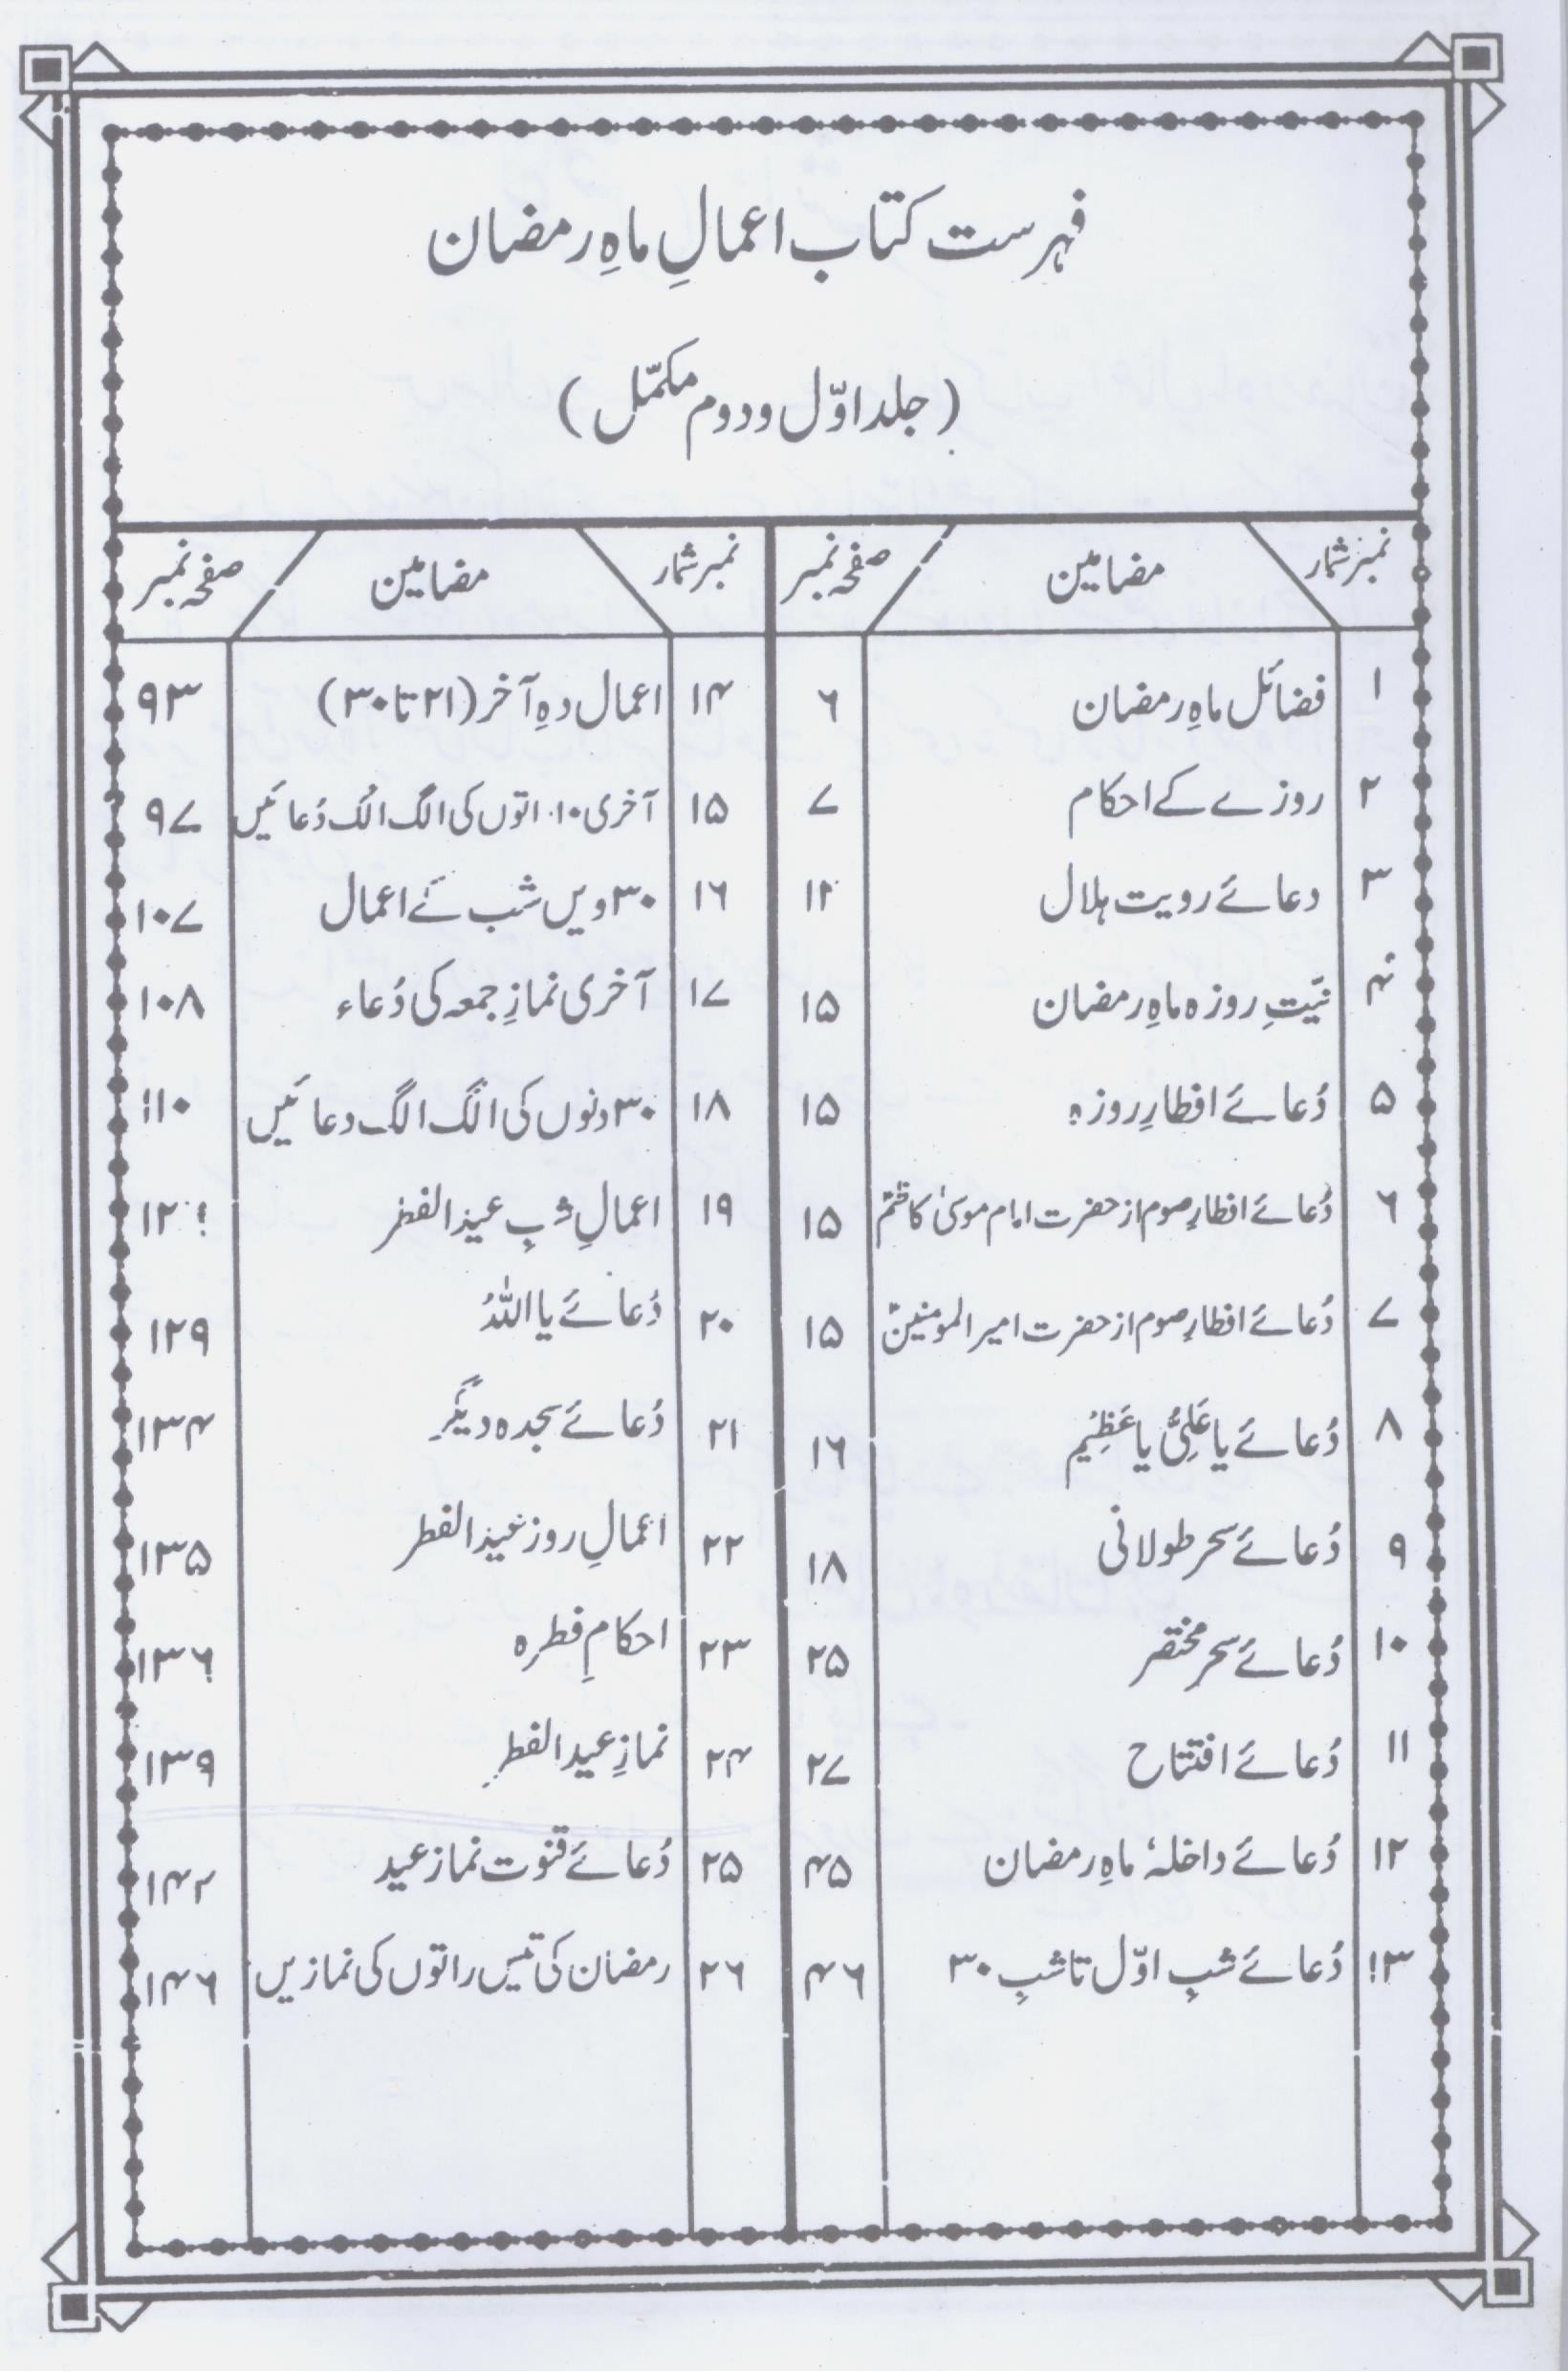 فہرست کتاب اعمالِ ماہِ رمضان
(جلد اوّل و دوم مکمّل)
نمبر شمار مضامین صفحہ نمبر
۱ فضائل ماہِ رمضان ۶
۲ روزے کے احکام ۷
۳ دعائے رویت ہلال ۱۲
۴ نیّتِ روزہ ماہِ رمضان ۱۵
۵ دُعائے افطارِ روزہ ۱۵
۶ دُعائے افطارِ صوم از حضرت امام موسیٰ کاظمؑ ۱۵
۷ دُعائے افطارِ صوم از حضرت امیر المومنینؑ ۱۵
۸ دُعائے یا عَلِیُّ یا عَظِیْم ۱۶
۹ دُعائے سحر طولانی ۱۸
۱۰ دُعائے سحر مختصر ۲۵
۱۱ دُعائے افتتاح ۲۷
۱۲ دُعائے داخلۂ ماہِ رمضان ۴۵
۱۳ دُعائے شبِ اوّل تا شبِ ۳۰ ۴۶
نمبر شمار مضامین صفحہ نمبر
۱۴ اعمال دہِ آخر (۲۱ تا ۳۰) ۹۳
۱۵ آخری ۱۰ راتوں کی الگ الگ دُعائیں ۹۷
۱۶ ۳۰ ویں شب کے اعمال ۱۰۷
۱۷ آخری نمازِ جمعہ کی دُعاء ۱۰۸
۱۸ ۳۰ دنوں کی الگ الگ دعائیں ۱۱۰
۱۹ اعمالِ شبِ عید الفطر
۲۰ دُعائے یا اللّٰہُ ۱۲۹
۲۱ دُعائے سجدہ دیگر ۱۳۴
۲۲ اعمالِ روز عید الفطر ۱۳۵
۲۳ احکامِ فطرہ ۱۳۶
۲۴ نمازِ عید الفطر ۱۳۹
۲۵ دُعائے قنوت نماز عید ۱۴۲
۲۶ رمضان کی تیس راتوں کی نمازیں ۱۴۶